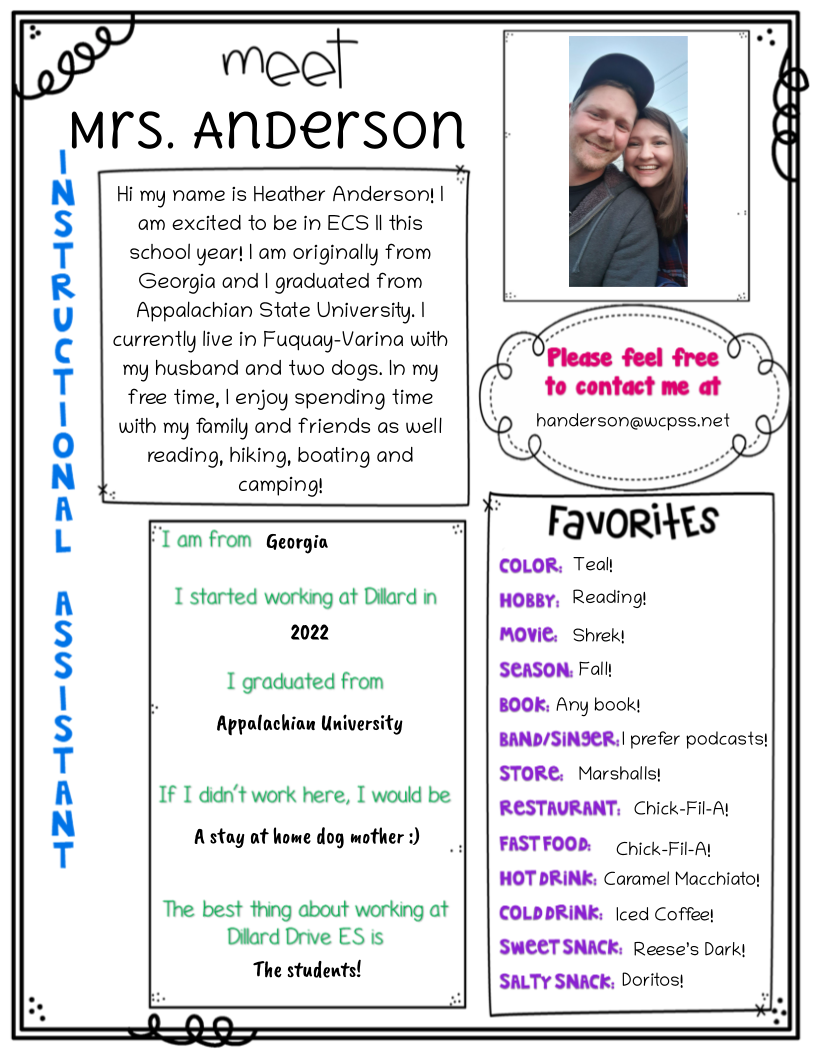 meet
Mrs. Anderson
INSTRUCTIONAL ASSISTANT
Hi my name is Heather Anderson! I
am excited to be in ECS II this
school year! I am originally from
Georgia and I graduated from
Appalachian State University. I
currently live in Fuquay-Varina with
my husband and two dogs. In my
free time, I enjoy spending time
with my family and friends as well
reading, hiking, boating and
camping!
Please feel free
to contact me at
handerson@wcpss.net
I am from Georgia
I started working at Dillard in
2022
I graduated from
Appalachian University
If I didn't work here, I would be
A stay at home dog mother :)
The best thing about working at
Dillard Drive ES is
The students!
FAVORITES
COLOR: Teal!
HOBBY: Reading!
MOVIE: Shrek!
SEASON: Fall!
BOOK: Any book!
BAND/SINGER: I prefer podcasts!
STORE: Marshalls!
RESTAURANT: Chick-Fil-A!
FAST FOOD: Chick-Fil-A!
HOT DRINK: Caramel Macchiato!
COLD DRINK: Iced Coffee!
SWEET SNACK: Reese's Dark!
SALTY SNACK: Doritos!